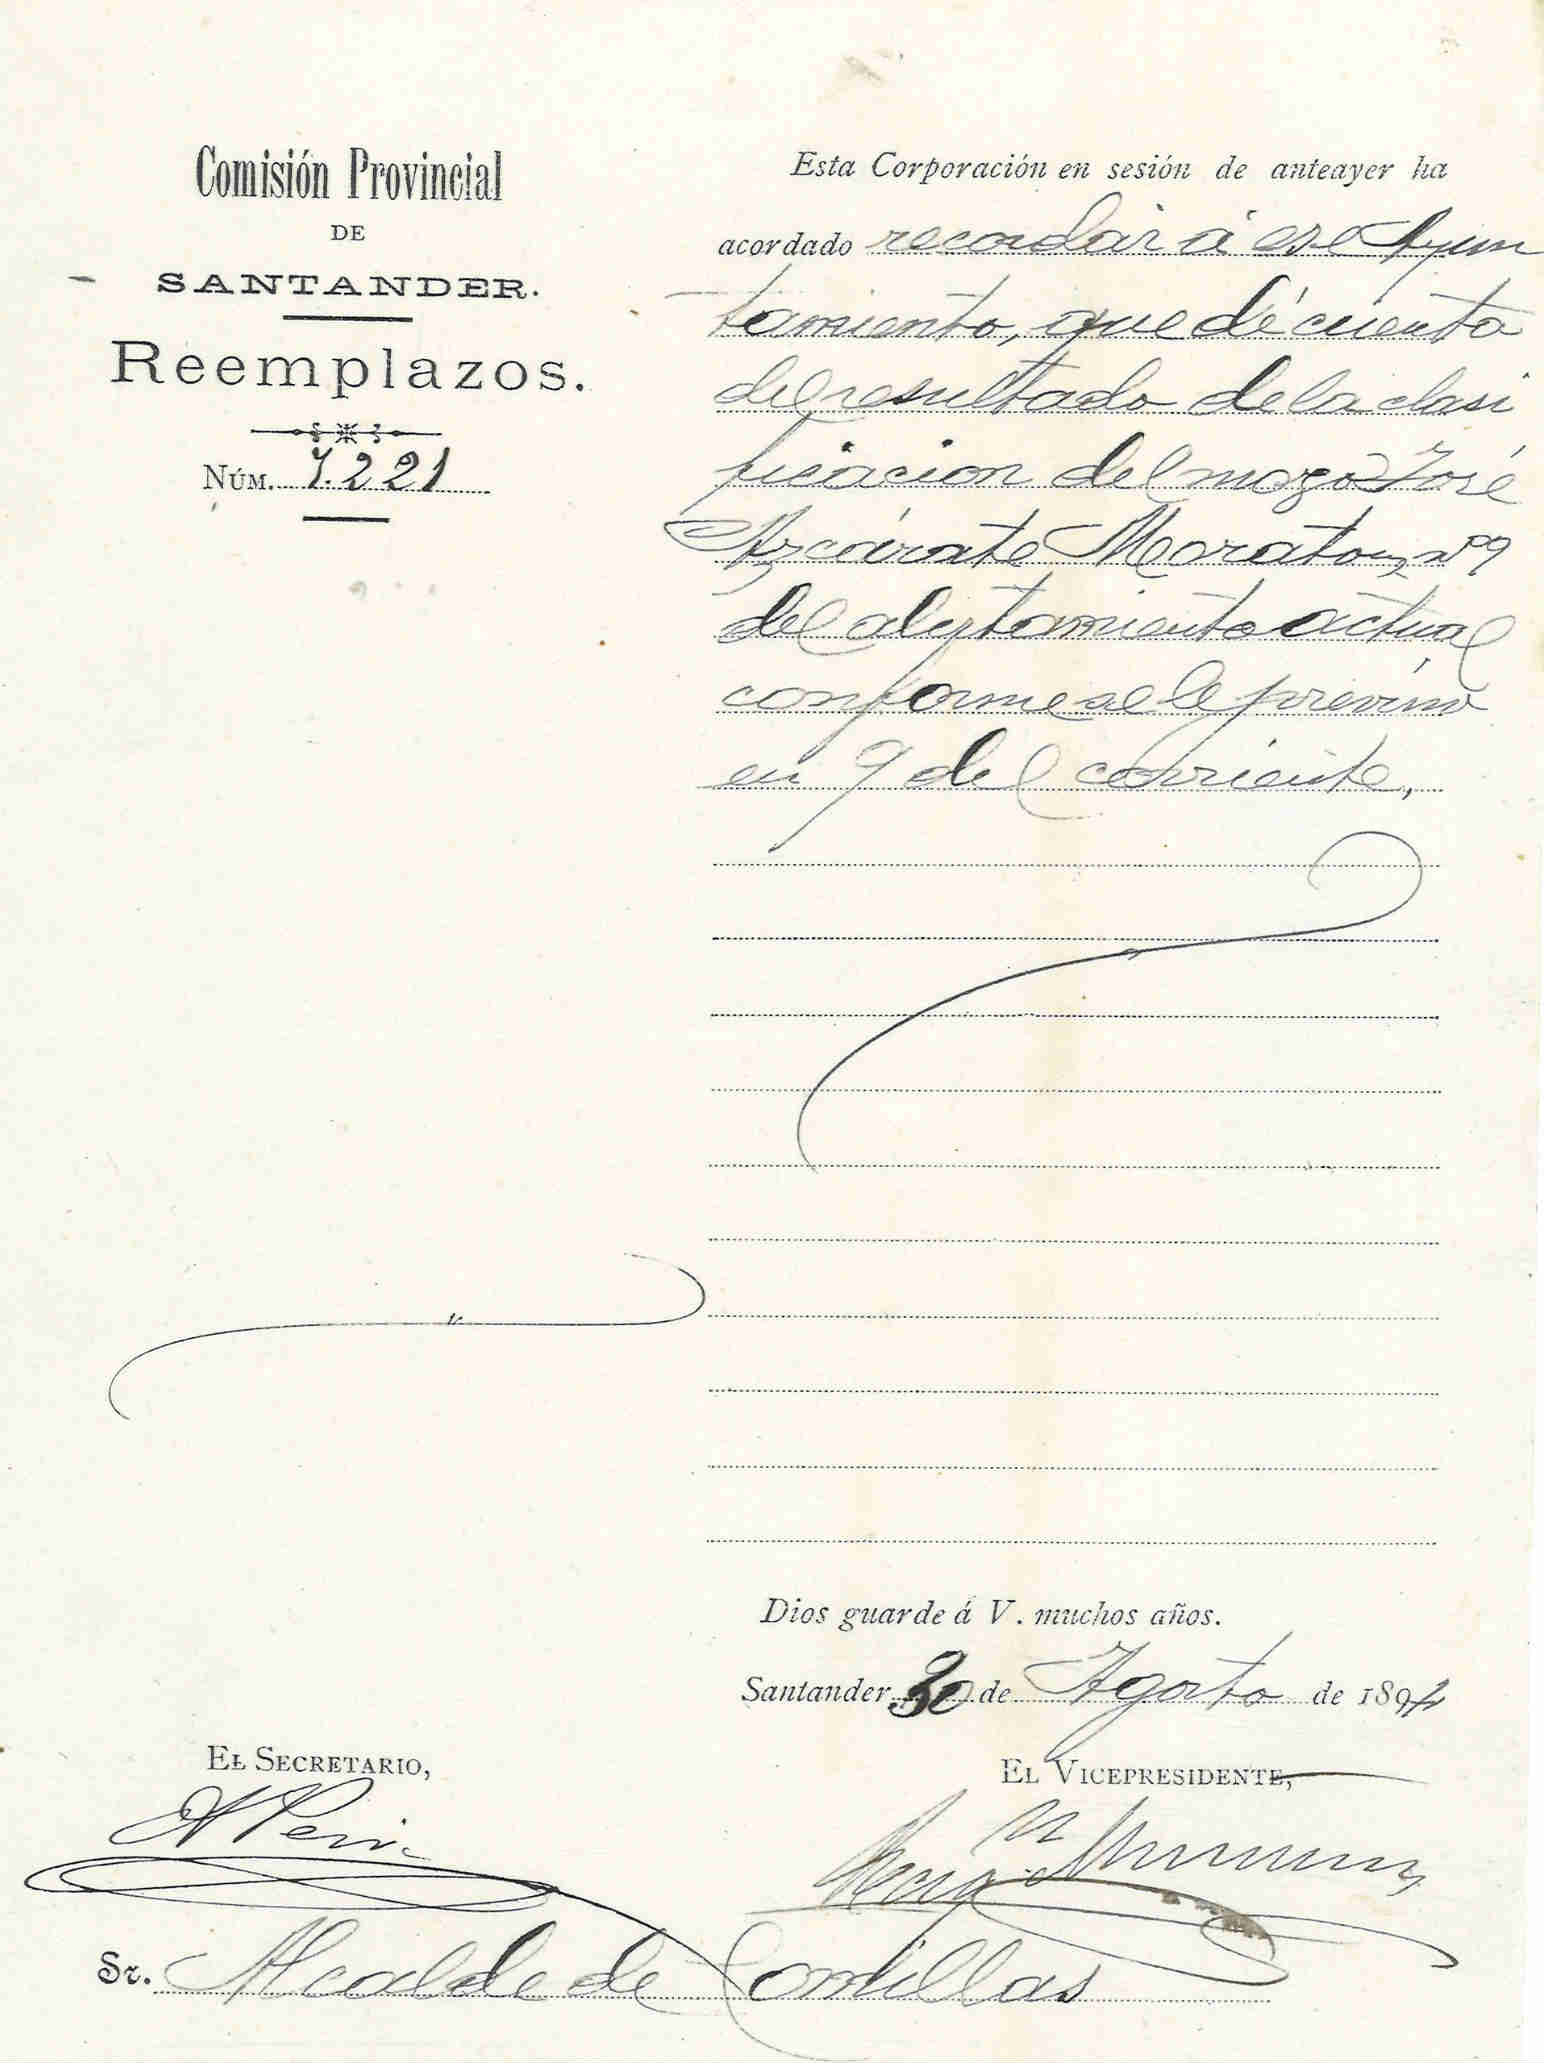 Comisión Provincial
DE
SANTANDER.
Reemplazos.
NÚM. 7.221
Esta Corporación en sesión de anteayer ha
acordado recordar á ese Ayun
tamiento, que dé cuenta
del resultado de la clasi
ficacion del mozo José
Azcárate Morato, nº 9
del alistamiento actual
conforme se le previno
en 9 del corriente,
Dios guarde á V. muchos años.
Santander 30 de Agosto de 1894
EL SECRETARIO,
EL VICEPRESIDENTE,
Sr. Alcalde de Comillas